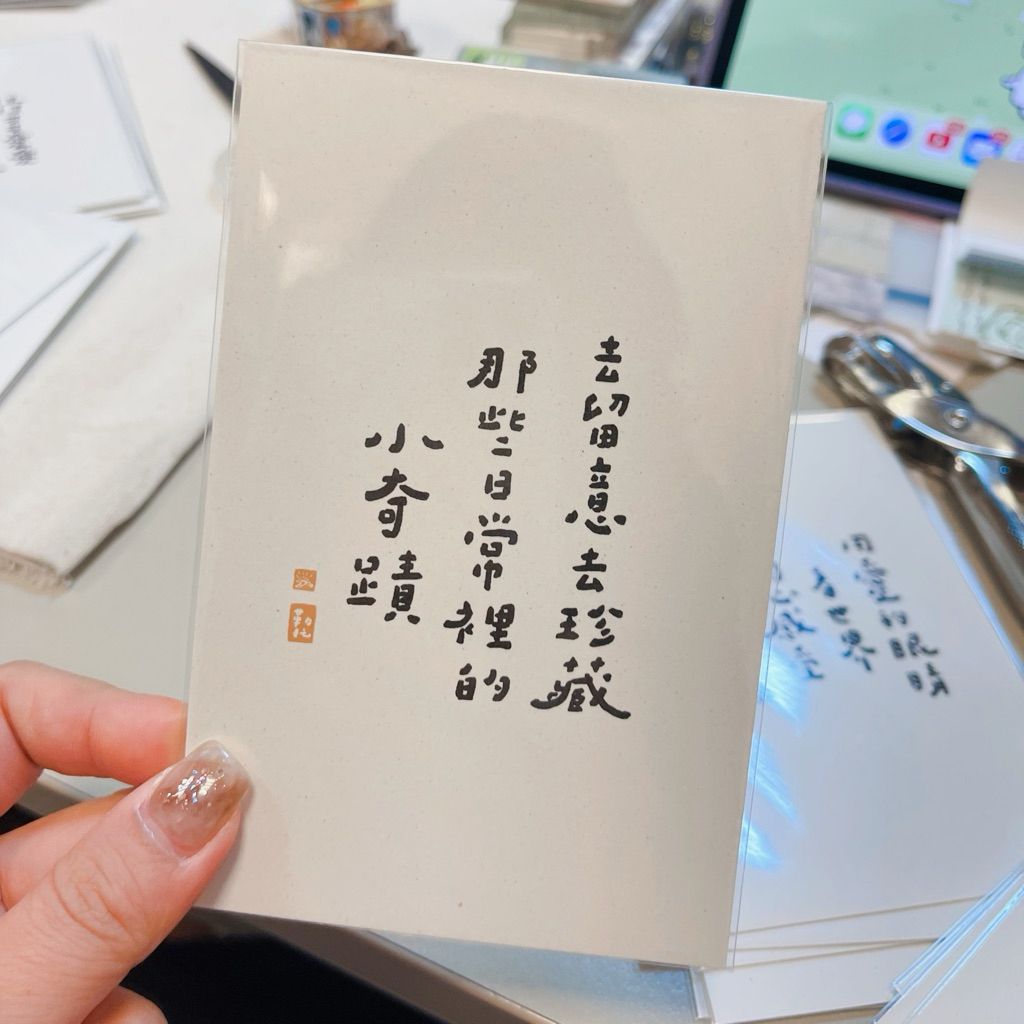 去留意去珍藏
那些日常裡的
小奇蹟
用愛的眼睛
看世界